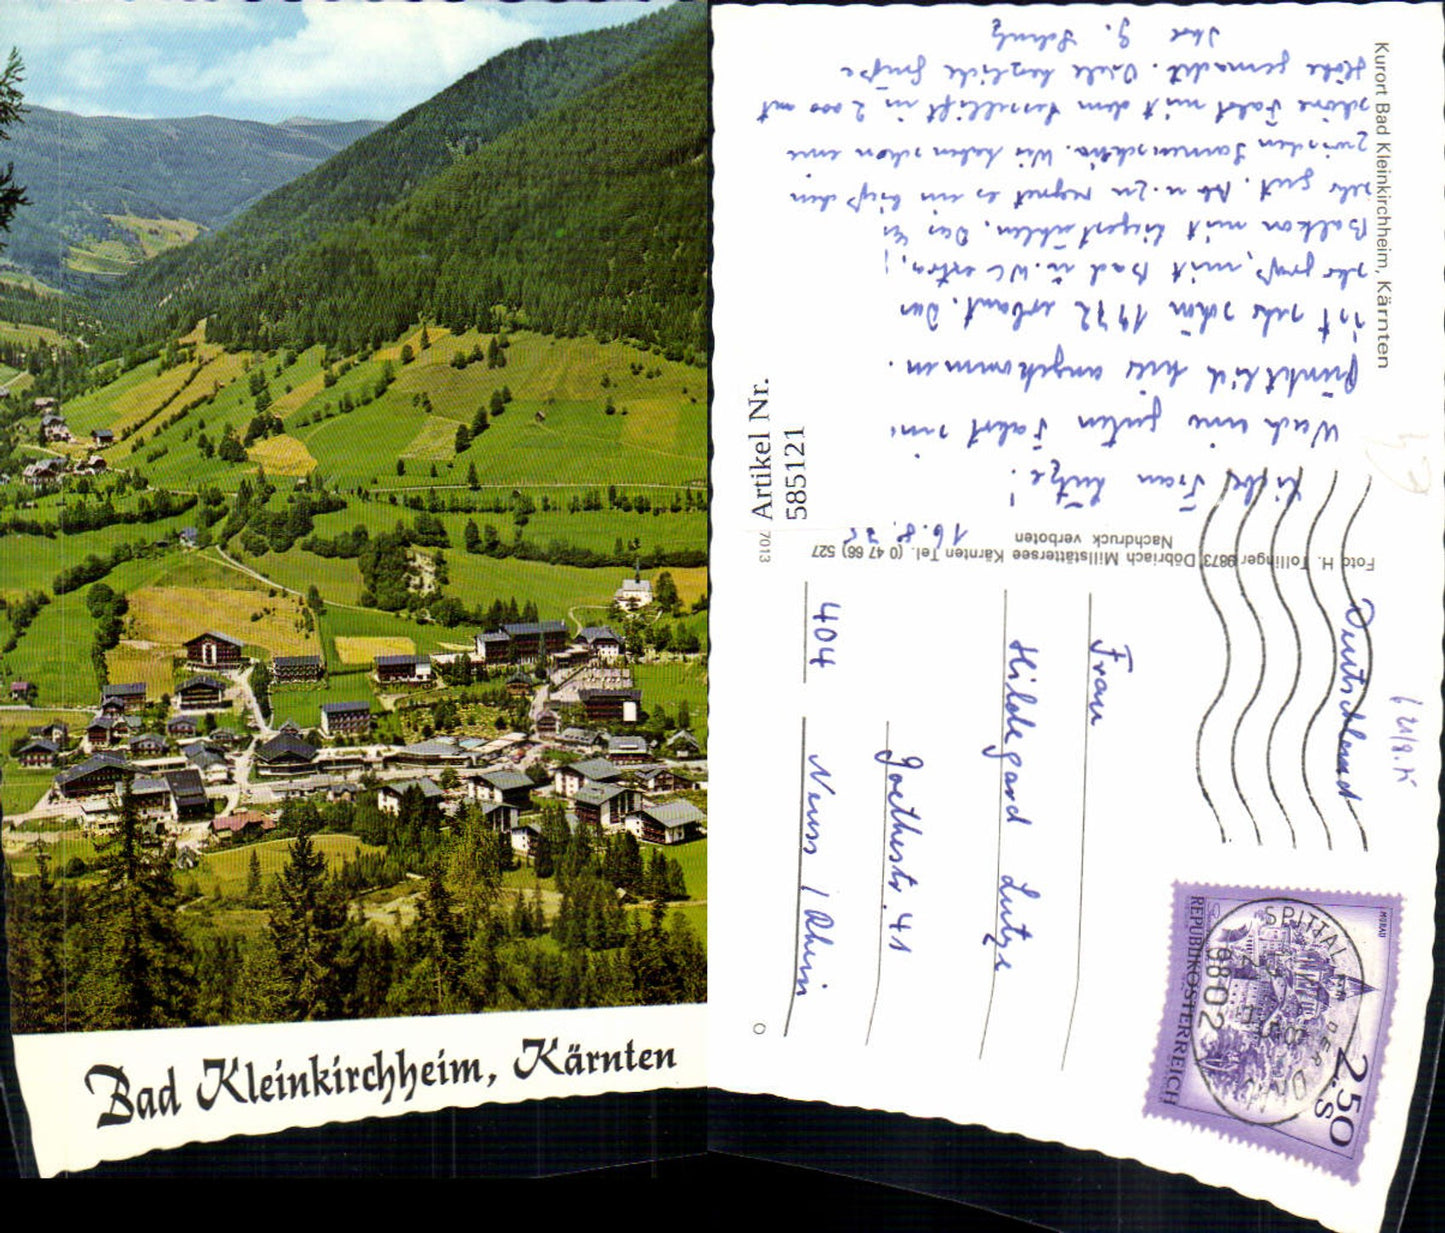 Bad Kleinkirchheim, Kärnten
Kurort Bad Kleinkirchheim, Kärnten
Artikel Nr.
585121
7013
16.8.75
Liebe Frau Lutze!
Nach einer guten Fahrt sind
pünktlich hier angekommen.
ist sehr schön 1972 erbaut. Das
sehr groß, mit Bad u. WC extra,
Balkon mit Liegestühlen. Das
sehr gut. Ab u. zu regnet es ein bißchen
zwischen Sonnenschein. Wir haben schon eine
schöne Fahrt mit dem Sessellift in 2000 mt
Höhe gemacht. Viele herzliche Grüße
Ihre G. Schulz
Foto H. Tollinger 9873 Döbriach Millstättersee Kärnten Tel. (0 47 66) 527
Nachdruck verboten
Frau
Hildegard Lutze
Goethestr. 41
404 Neuss / Rhein
Deutschland
I. MORAU
REPUBLIK ÖSTERREICH
2.50
S
SPITTAL AN DER DRAU
9802